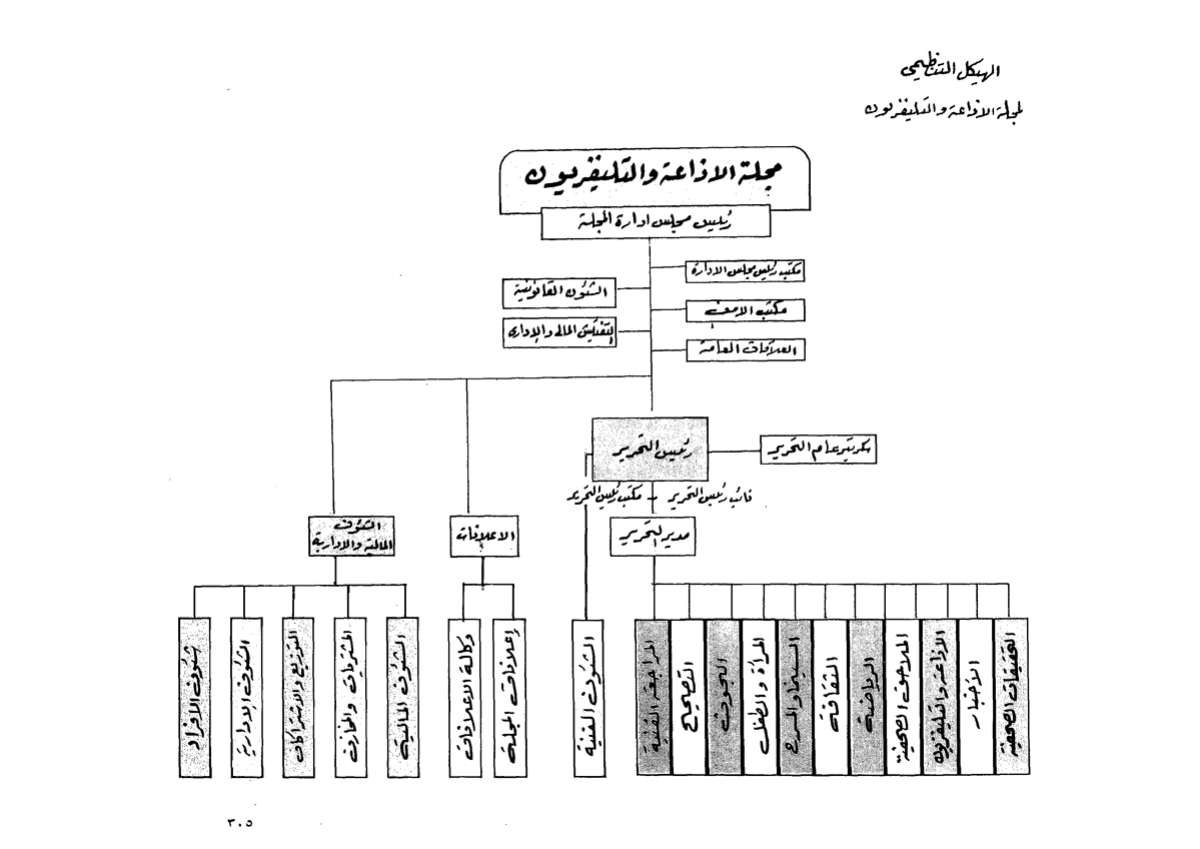 الهيكل التنظيمى
لمجلة الاذاعة والتليفزيون
مجلة الاذاعة والتليفزيون
رئيس مجلس ادارة المجلة
مكتب رئيس مجلس الادارة
الشئون القانونية
مكتب الامن
التفتيش المالى والإدارى
العلاقات العامة
رئيس التحرير
سكرتير عام التحرير
نائب رئيس التحرير - مكتب رئيس التحرير
مدير التحرير
الاعلانات
الشئون
المالية والادارية
التحقيقات الصحفية
الأخبار
الاذاعة والتليفزيون
الملاحق الصحفية
الرياضة
الثقافة
السينما والمسرح
المرأة والطفل
البحوث
التصحيح
المراجعة الفنية
الشئون الفنية
إعلانات المجلة
وكالة الاعلانات
الشئون المالية
المشتريات والمخازن
التوزيع والاشتراكات
الشئون الإدارية
شئون الأفراد
٣٠٥